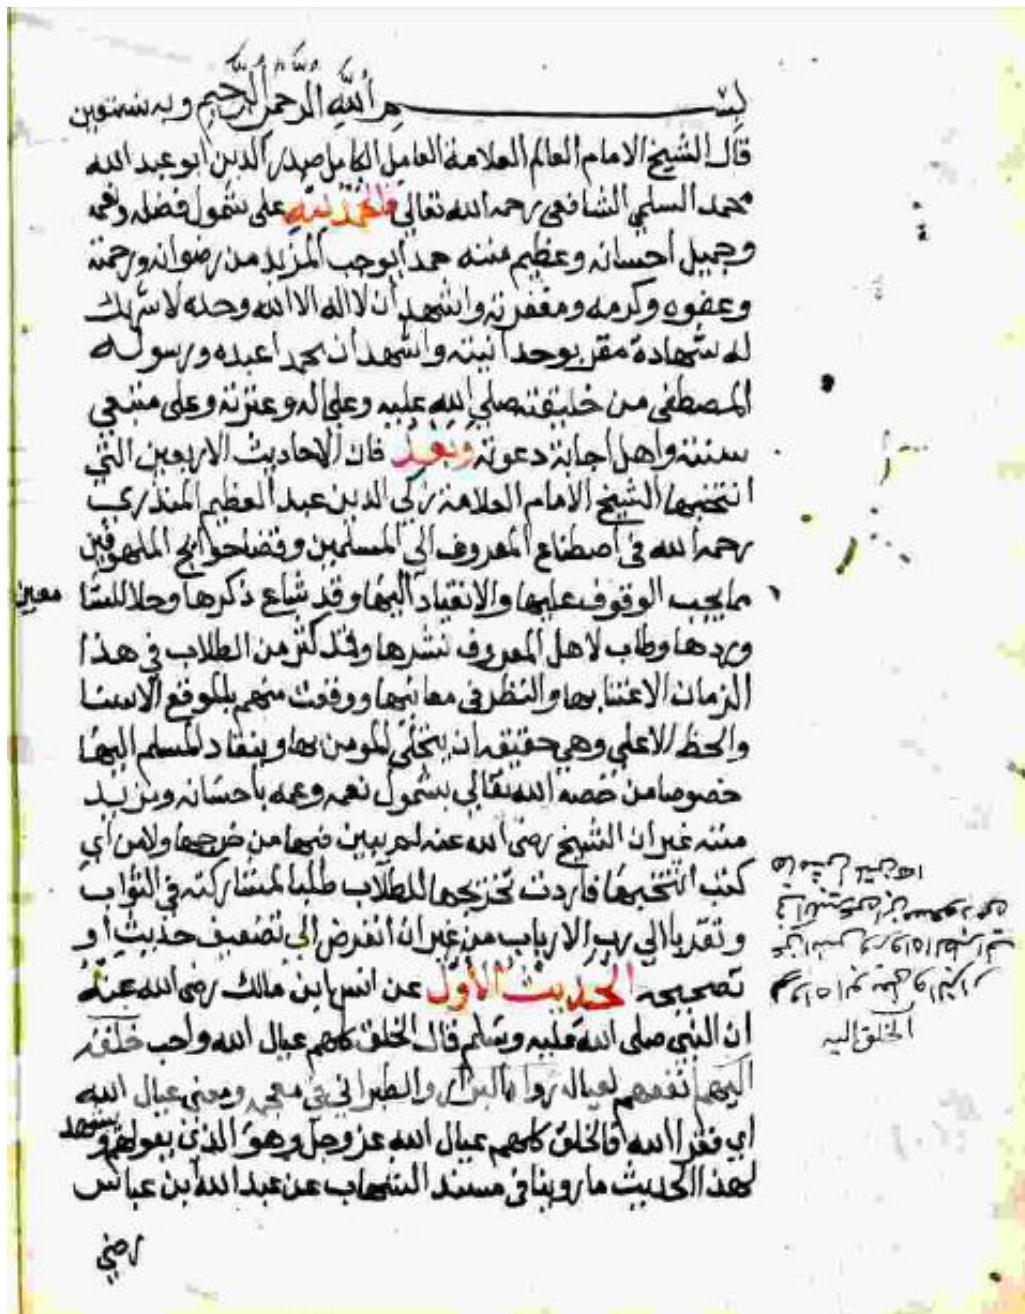 بسم الله الرحمن الرحيم وبه نستعين
قال الشيخ الامام العالم العلامة العامل الكامل صدر الدين ابو عبد الله
محمد السلمي الشافعي رحمه الله تعالى فالحمد لله على شمول فضله ونعمه
وجميل احسانه وعظيم مننه حمدا يوجب المزيد من رضوانه ورحمته
وعفوه وكرمه ومغفرته واشهد ان لا اله الا الله وحده لا شريك
له شهادة مقر بوحدانيته واشهد ان محمدا عبده ورسوله
المصطفى من خليقته صلى الله عليه وعلى اله وعترته وعلى متبعي
سنته واهل اجابة دعوته وبعد فان الاحاديث الاربعين التي
انتخبها الشيخ الامام العلامة زكي الدين عبد العظيم المنذري
رحمه الله في اصطناع المعروف الي المسلمين وقضا حوايج الملهوفين
مما يجب الوقوف عليها والانقياد اليها وقد شاع ذكرها وحلا للسا معين
وردها وطاب لاهل المعروف نشرها وقد كثر من الطلاب في هذا
الزمان الاعتنا بها والنظر في معانيها ووقعت منهم بالموقع الاسنا
والحظ الاعلى وهي حقيقه ان يتحلى المومن بها وينقاد المسلم اليها
خصوصا من خصه الله تعالي بشمول نعمه وعمه باحسانه ومزيد
مننه غير ان الشيخ رضى الله عنه لم يبين فيها من خرجها ولا من اي
كتب انتخبها فاردت تخريجها للطلاب طلبا لمشاركته في الثواب
وتقربا الي رب الارباب من غير ان اتعرض الي تضعيف حديث او
تصحيحه الحديث الاول عن انس ابن مالك رضى الله عنه
ان النبي صلى الله عليه وسلم قال الخلق كلهم عيال الله واحب خلقه
اليه انفعهم لعياله رواه البزار والطبراني في معجمه ومعنى عيال الله
اي فقرا الله فالخلق كلهم عيال الله عز وجل وهو الذي يعولهم ويشهد
لهذا الحديث ما روينا في مسند الشهاب عن عبد الله بن عباس
رضي
الخلق اليه